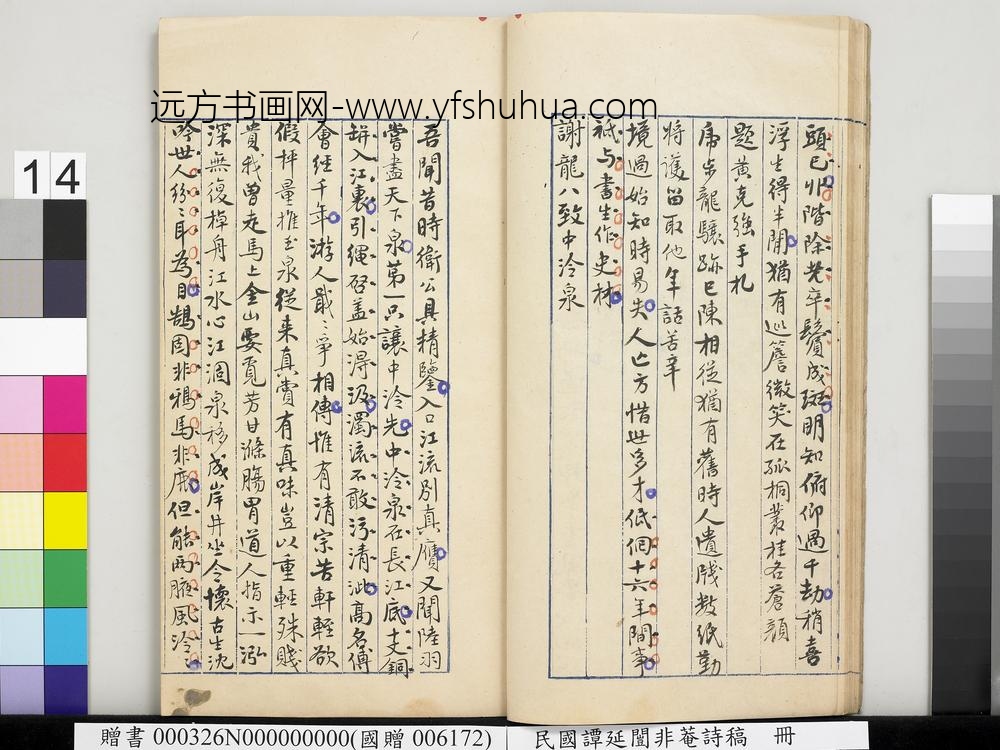 远方书画网-www.yfshuhua.com
頭已非階除老卒鬢成斑明知俯仰過千劫稍喜
浮生得半閒猶有巡簷微笑在孤桐叢桂各蒼顏
題黃克強手札
虎步龍驤跡已陳相從猶有舊時人遺牋數紙勤
將護留取他年話苦辛
境過始知時易失人亡方惜世多才低佪十六年間事
祇与書生作史材
謝龍八致中泠泉
吾聞昔時衛公具精鑒入口江流別真贋又聞陸羽
嘗盡天下泉第一只讓中泠先中泠泉在長江底丈銅
缾入江裏引繩啓蓋始得汲濁流不敢污清泚高名傳
會經千年游人戢〻爭相傳惟有清宗苦軒輊欲
假枰量推玉泉從来真賞有真味豈以重輕殊賤
貴我曾走馬上金山要覓芳甘滌腸胃道人指示一泓
深無復棹舟江水心江涸泉移成岸井坐令懷古生沈
吟世人紛〻耳為目鵠固非鴉馬非鹿但能兩腋風泠〻
14
贈書 000326N000000000(國贈 006172)
民國譚延闓非菴詩稿 冊